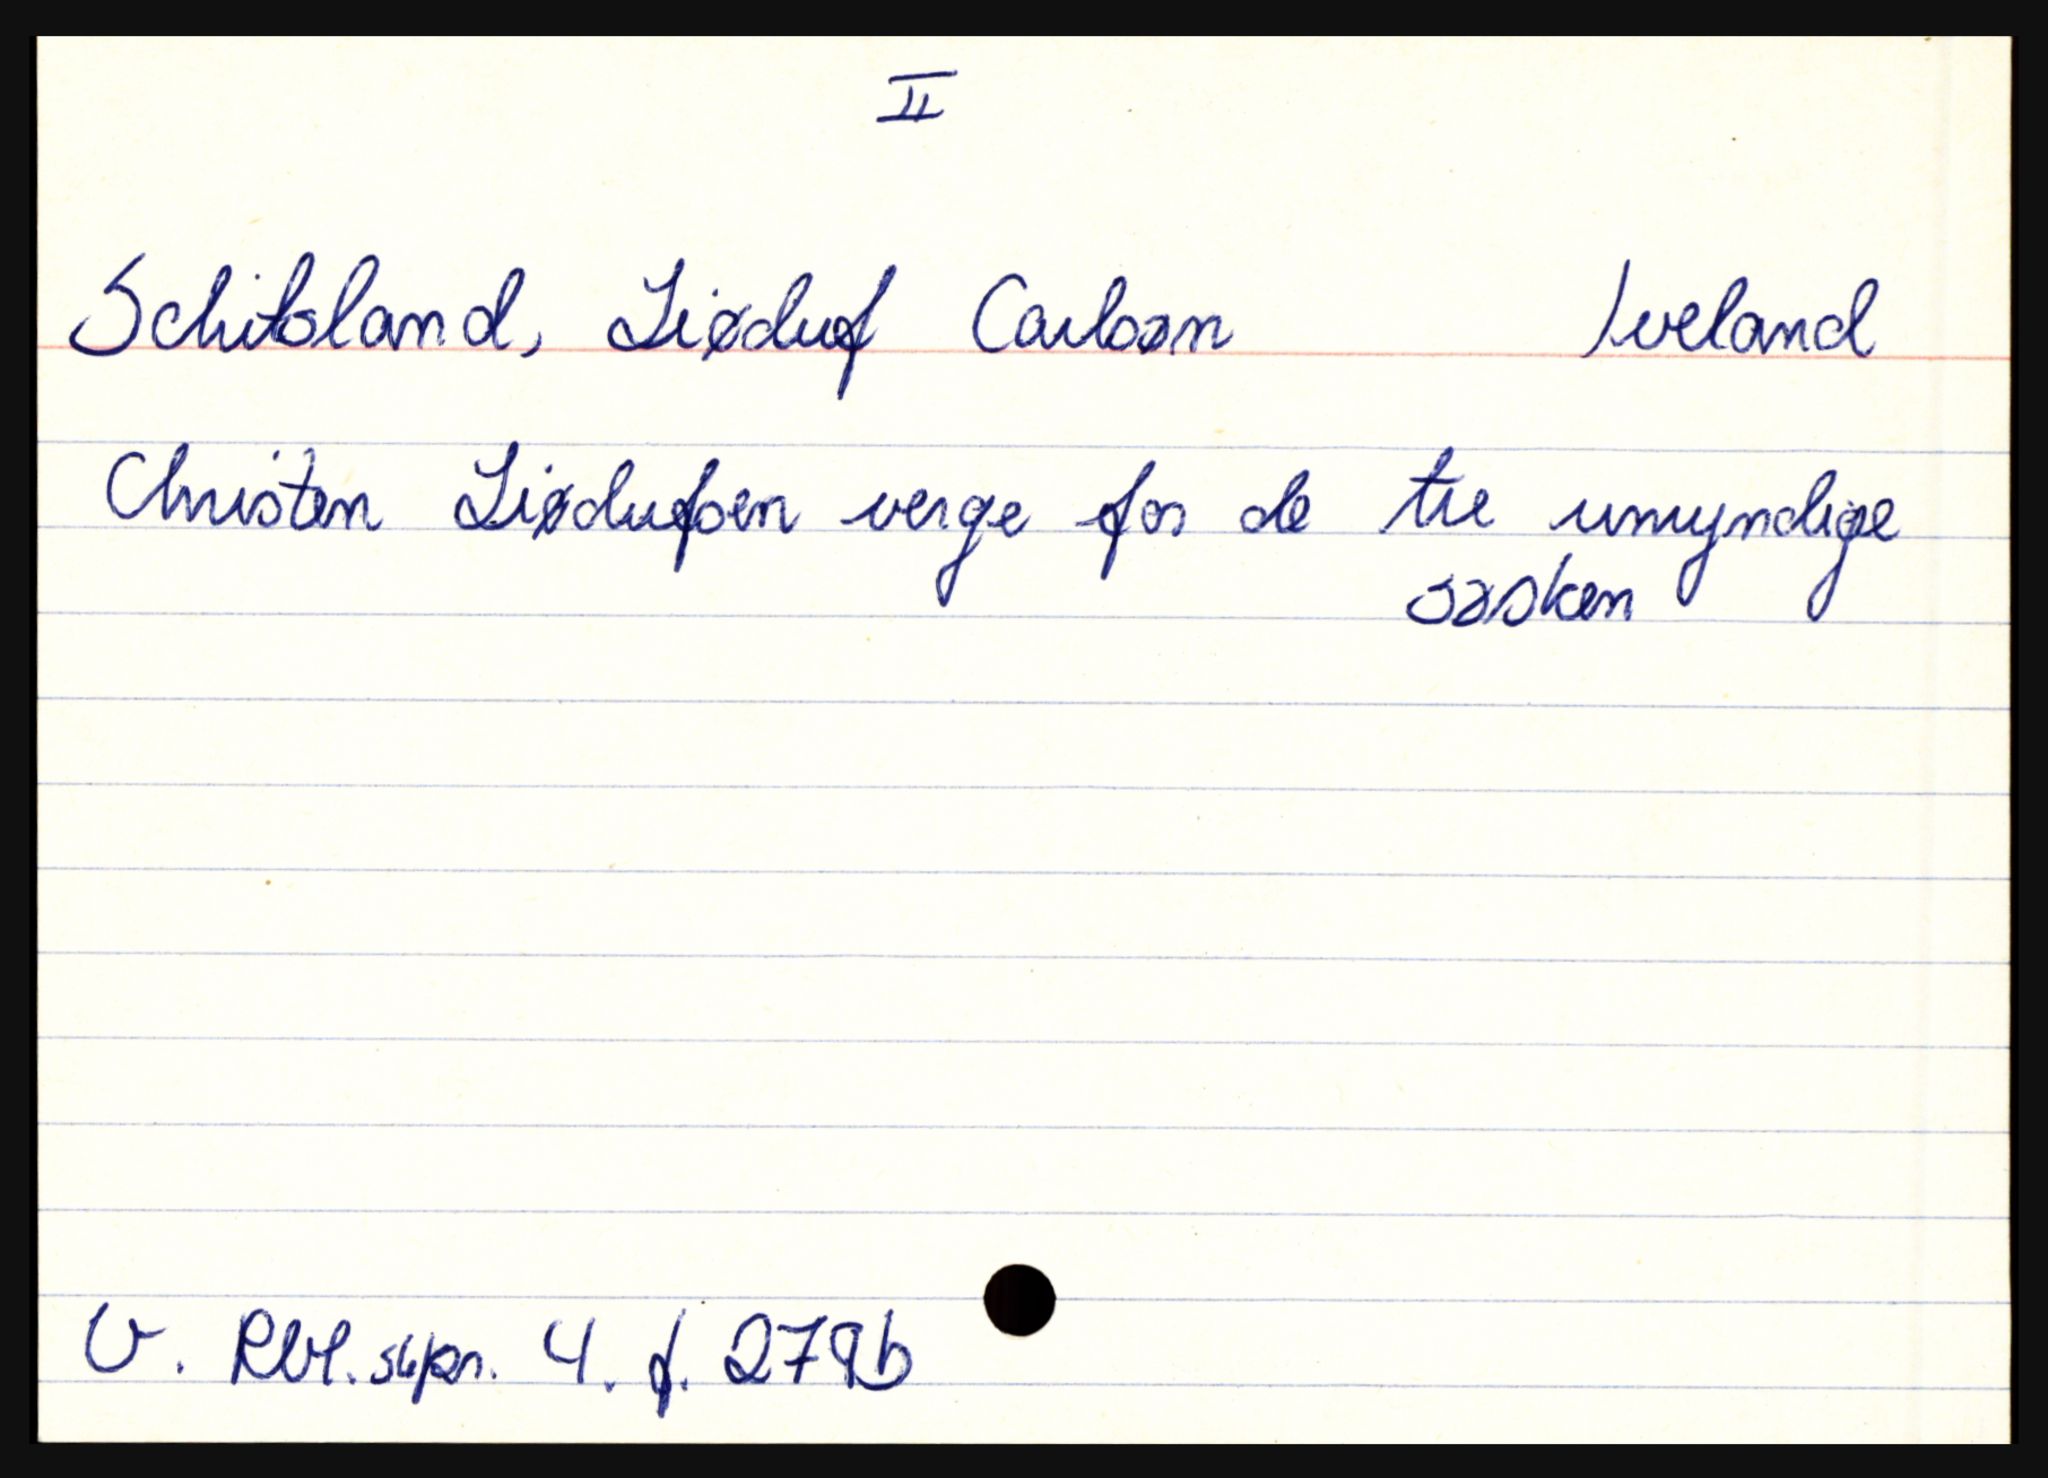 II
Schibsland, Liøduf Carlsøn Iveland
Christen Liødufsen verge for de tre umyndige
søsken
V. Rbl. skpr. 4. f. 279b